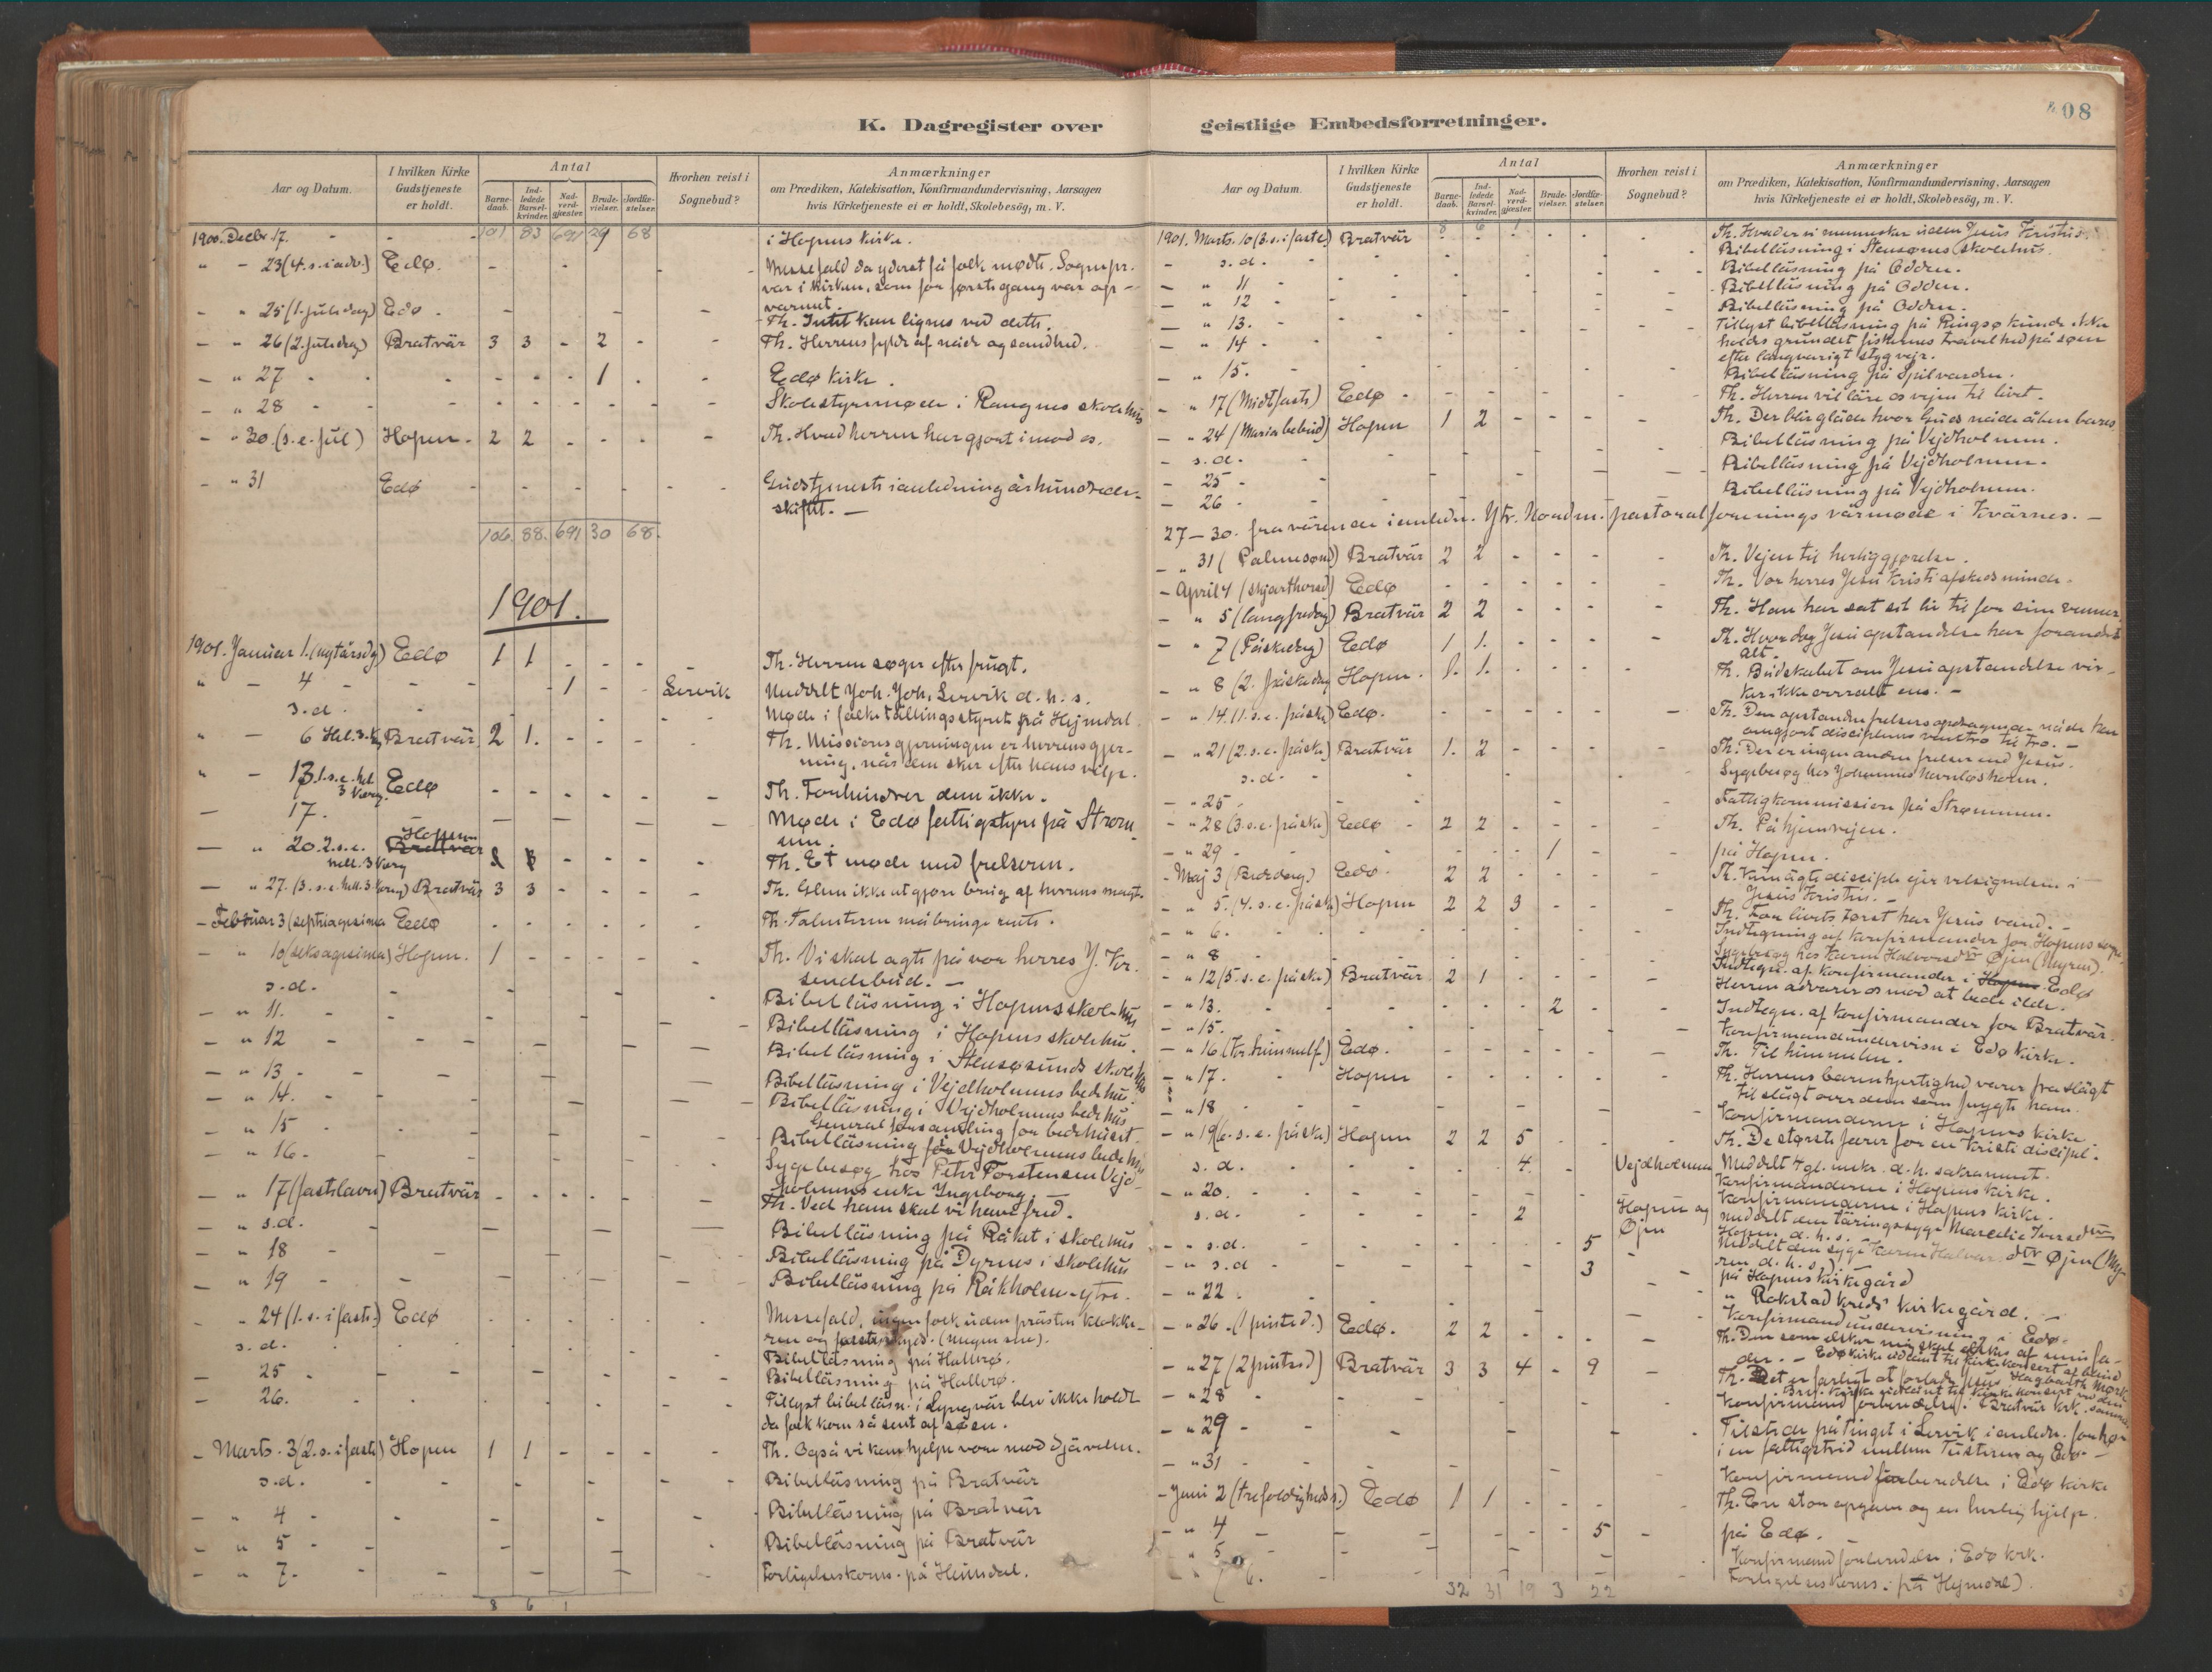 K. Dagregister over
Aar og Datum.
I hvilken Kirke Gudstjeneste er holdt.
Antal
Barnedaab.
Indledede Barselkvinder.
Nadverdgjæster.
Brudevielser.
Jordfæstelser.
Hvorhen reist i Sognebud?
Anmærkninger
om Prædiken, Katekisation, Konfirmandundervisning, Aarsagen
hvis Kirketjeneste ei er holdt, Skolebesög, m. V.
1900. Decbr 17. - - 101 83 691 29 68 i Hopens kirke.
" - 23 (4. s. i adv.) Edø. Messefald da yderst få folk mødte. Sognepr.
var i kirken, som for første gang var op-
varmet.
- " 25 (1. juledag) Edø - Th. Intet kan lignes ved dette.
- " 26 (2. juledag) Bratvär 3 3 - 2 - - Th. Herrens fylde af nåde og sandhed.
- " 27 - - - - - 1 - - Edø kirke.
- " 28 - - Skolestyremøde i Rangnes skolehus
- " 30. (s. e. jul) Hopen - 2 2 - - - - Th. Hvad herren har gjort imod os.
- " 31 Edø - - - - - - Gudstjeneste i anledning århundrede-
skiftet. -
106. 88. 691 30 68.
1901.
1901. Januar 1. (nytårsdg) Edø 1 1 - - - - Th. Herren søger efter frugt.
" - 4 - - - 1 - - Lervik Meddelt Joh. Joh. Lervik d. h. s.
s.d. - Møde i folketällingsstyret på Hejmdal
" - 6 Hel. 3. kg Bratvär 2 1. - - - - Th. Missionsgjerningen er herrens gjer-
ning, når den sker efter hans vilje.
" - 13. 1. s. e. hel. 3 kong. Edø - - - - - - Th. Forhindrer dem ikke.
- 17. - - - - - - Møde i Edø fattigstyre på Strøm-
men.
- " 20. 2. s. e. hell. 3 kong Hopen Th. Et møde med frelseren.
- " 27. (3. s. e. hell. 3 kong) Bratvär 3 3 - - - - Th. Glem ikke at gjøre brug af herrens magt.
- Februar 3 (septuagesima Edø - - - - - - Th. Talenterne må bringe rente.
- " 10 (seksagesima) Hopen. 1 - - - - - Th. Vi skal agte på vor herres J. Kr.
sendebud. -
s.d. - Bibelläsning i Hopens skolehus
- " 11. - Bibelläsning i Hopens skolehus.
- " 12 - Bibelläsning i Stensøsunds skolehus
- " 13 - Bibelläsning i Vejdholmens bedehus.
- " 14. - Bibelläsning i Vejdholmens bedehus
General forsamling for bedehuset.
- " 15 - Bibelläsning Vejdholmens bedehus
- " 16 - Sygebesøg hos Peter Torstensen Vejd-
holmens enke Ingeborg. -
- " 17 (fastelavn) Bratvär - - - - - Th. Ved ham skal vi have fred.
- " s.d. - Bibelläsning på Råket i skolehus
- " 18 - Bibelläsning på Dyrnes i skolehus
- " 19 - Bibelläsning på Råkholm-ytre.
- " 24 (1. s. i faste.) Edø Messefald, ingen folk uden prästen klokke-
ren og
s. d. - Bibelläsning på Hallerø.
- 25 - Bibelläsning på Hallerø.
- 26. - Tillyst bibelläsn. i Lyngvär blev ikke holdt
da folk kom så sent af søen.
- Marts. 3 (2. s. i faste) Hopen 1 1 - - - - Th. Også vi kan hjelpe vore mod djävelen.
s.d. - Bibelläsning på Bratvär
- " 4 - Bibelläsning på Bratvär
- " 5 - Bibelläsning på Bratvär
- " 7. - Forligelseskoms. på Heimdal.
8 6 1
geistlige Embedsforretninger.
208
Aar og Datum.
I hvilken Kirke Gudstjeneste er holdt.
Antal
Barnedaab.
Indledede Barselkvinder.
Nadverdgjæster.
Brudevielser.
Jordfæstelser.
Hvorhen reist i Sognebud?
Anmærkninger
om Prædiken, Katekisation, Konfirmandundervisning, Aarsagen
hvis Kirketjeneste ei er holdt, Skolebesög, m. V.
8 6 1
1901. Marts. 10 (3. s. i faste) Bratvär - - - - - - Th. Hvad er vi mennesker uden Jesus Kristus.
- s.d. - Bibelläsning i Stensønes skolehus.
- " 11 - Bibelläsning på Odden.
- " 12 - Bibelläsning på Odden.
- " 13. - Bibelläsning på Odden.
- " 14 - Tillyst bibelläsning på Ringsø kunde ikke
holdes grundet fiskernes travelhed på søen
efter langvarigt stygvejr.
- " 15. - Bibelläsning på Spilvarden.
- " 17 (Midtfaste) Edø - Th. Herren vil läre os vejen til livet.
- " 24 (Maria bebud) Hopen 1 2 - - - - Th. Der blir gläde hvor Guds nåde åbenbares
- s.d. - Bibelläsning på Vejdholmen.
- 25 - Bibelläsning på Vejdholmen.
- 26 - Bibelläsning på Vejdholmen.
27-30. fraværende i anledn. Ytr. Nordm. pastoralforenings vårmøde i Kvärnes. -
- " 31 (Palmesønd) Bratvär 2 2 - - - - Th. Vejen til herliggjørelse.
- April 4 (skjærthorsd) Edø - Th. Vor herres Jesu Kristi afskedsminde.
- " 5 (langfredag) Bratvär 2 2 - - - - Th. Han har sat sit liv til for sine venner.
- " 7 (Påskedag) Edø 1 1. - - - - Th. Hvordan Jesu opstandelse har forandret
alt.
- " 8 (2. påskedag Hopen. 1. 1. - - - - Th. Budskabet om Jesu opstandelse vir-
ker ikke overalt ens. -
- " 14. (1. s. e. påske) Edø. - Th. Den opstandne frelsers opdragende nåde har
omgjort disciplenes vantro til tro. -
- " 21 (2. s. e. påske) Bratvär 1. 2 - - - - Th. Der er ingen anden frelser end Jesus.
s.d. - Sygebesøg hos Johannes
- " 25 - Fattigkommission på Strømmen.
- " 28 (3. s. e. påske) Edø - 2 2 - - - - Th. På hjemvejen.
- " 29 - 1 - - på Hopen.
- Maj 3 (Bededag) Edø - 2 2 - - - - Th. disciple ejer velsignelsen i
Jesus Kristus. -
- " 5. (4. s. e. påske) Hopen 2 2 3 - - - Th. For livets tørst har Jesus vand. -
- " 6. - Indtegning af konfirmander for Hopens sogn.
- " 8 Sygebesøg hos Karen Halvorsdtr Øjen (Myren).
Indtegn. af konfirmander i Edø
- " 12 (5. s. e. påske) Bratvär 2 1 - - - - Herren advarer os mod at bede ilde.
- " 13. - 2 - - Indtegn. af konfirmander for Bratvär.
- " 15. - Konfirmandundervisn i Edø kirke.
- " 16 (Kr. himmelf.) Edø. - Th. Til himmelen.
- " 17. - Hopen - Th. Herrens barmhjertighed varer fra slägt
til slägt over dem som frygte ham.
- " 18 - Konfirmanderne i Hopens kirke.
- " 19 (6. s. e. påske) Hopen 2 2 5 - - - Th. De største farer for en Kristi discipel.
s. d. - 4. - Vejdholmen Meddelt 4 gl. enkr. d. h. sakrament.
- " 20. - Konfirmanderne i Hopens kirke.
Konfirmanderne i Hopens kirke.
s.d. - 2 Hopen og Øjen meddelt den täringssyge Marselie Iversdtr
Hopen d. h. s. -
Meddelt den syge Karen Halvorsdtr Øjen (My-
ren d. h. s.)
- " s.d. - 5 - på Hopens kirkegård
- " s.d - 3 - " Rokstad kreds' kirkegård. -
- " 22 - Konfirmandundervisning i Edø.
- " 26 (1 pintsed.) Edø. 2 2 - - - - Th. Den som elsker mig skal elskes af min fa-
der. - Edø kirke udlånt til kirkekonsert af blind
Hagbarth Mørk
- " 27 (2 pintsed) Bratvär 3 3 4 - 9 - Th. Det er farligt at forlade Jesus
- " 28 - Konfirmandforberedelse i Bratvär krk.
- " 29 - Tilstede på tinget i Lervik i anledn. forhør
i en fattigstrid mellem Tusteren og Edø -
- " 31 - Konfirmandforberedelse i Edø kirke
- Juni 2 (trefoldigheds s.) Edø 1 1 - - - - Th. En stor opgave og en herlig hjelp.
- " 4 - 5 - på Edø.
- " 5 - Konfirmandforberedelse i Edø krk.
" 6. - Forligelseskoms. på Hejmdal).
32 31 19 3 22